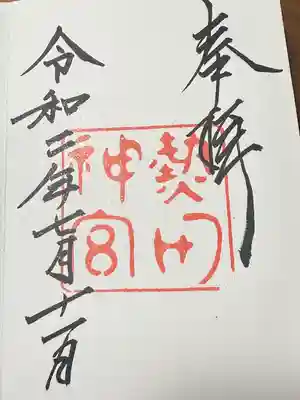 奉拝
熱田
神宮
令和二年七月十一日